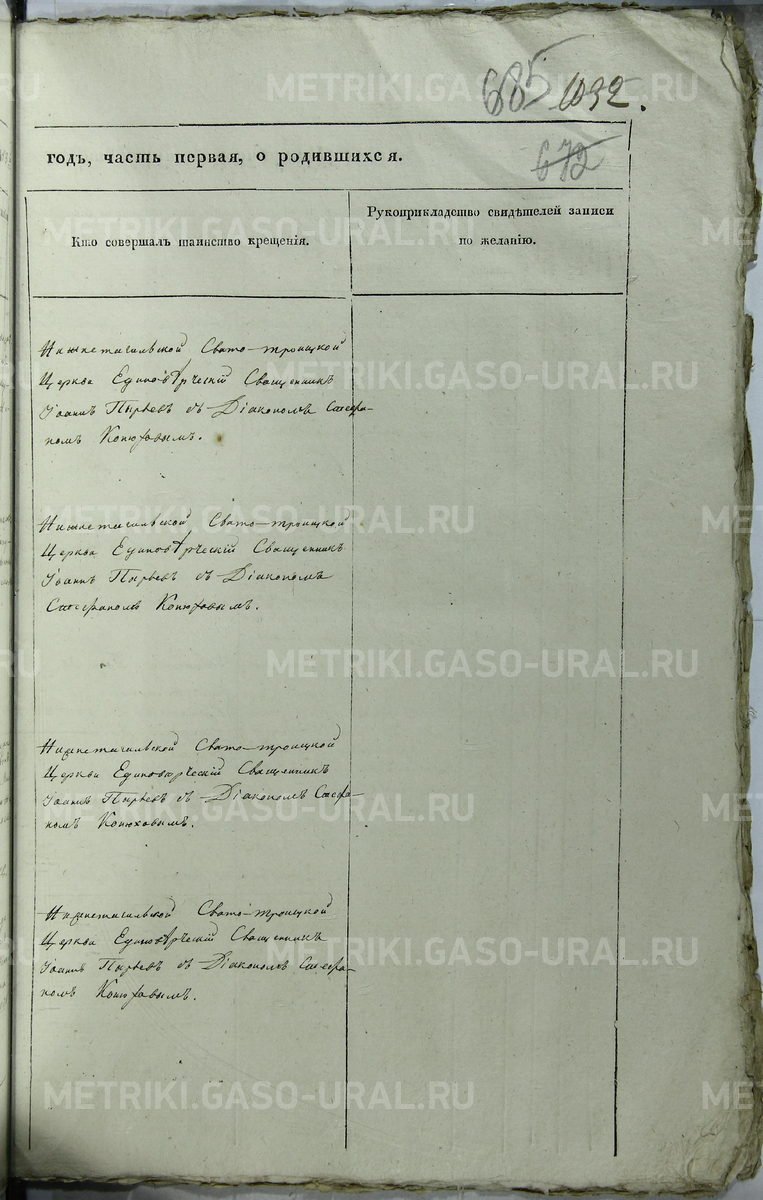 685 1032.
672
годъ, часть первая, о родившихся.
Кто совершалъ таинство крещенія.
Рукоприкладство свидѣтелей записи
по желанію.
Нижнетагильской Свято-троицкой
Церкви Единовѣрческій Священникъ
Іоаннъ Пырьевъ съ Діакономъ Стефа-
номъ Конюховымъ.
Нижнетагильской Свято-троицкой
Церкви Единовѣрческій Священникъ
Іоаннъ Пырьевъ съ Діакономъ
Стефаномъ Конюховымъ.
Нижнетагильской Свято-троицкой
Церкви Единовѣрческій Священникъ
Іоаннъ Пырьевъ съ Діакономъ Стефа-
номъ Конюховымъ.
Нижнетагильской Свято-троицкой
Церкви Единовѣрческій Священникъ
Іоаннъ Пырьевъ съ Діакономъ Стефа-
номъ Конюховымъ.
METRIKI.GASO-URAL.RU